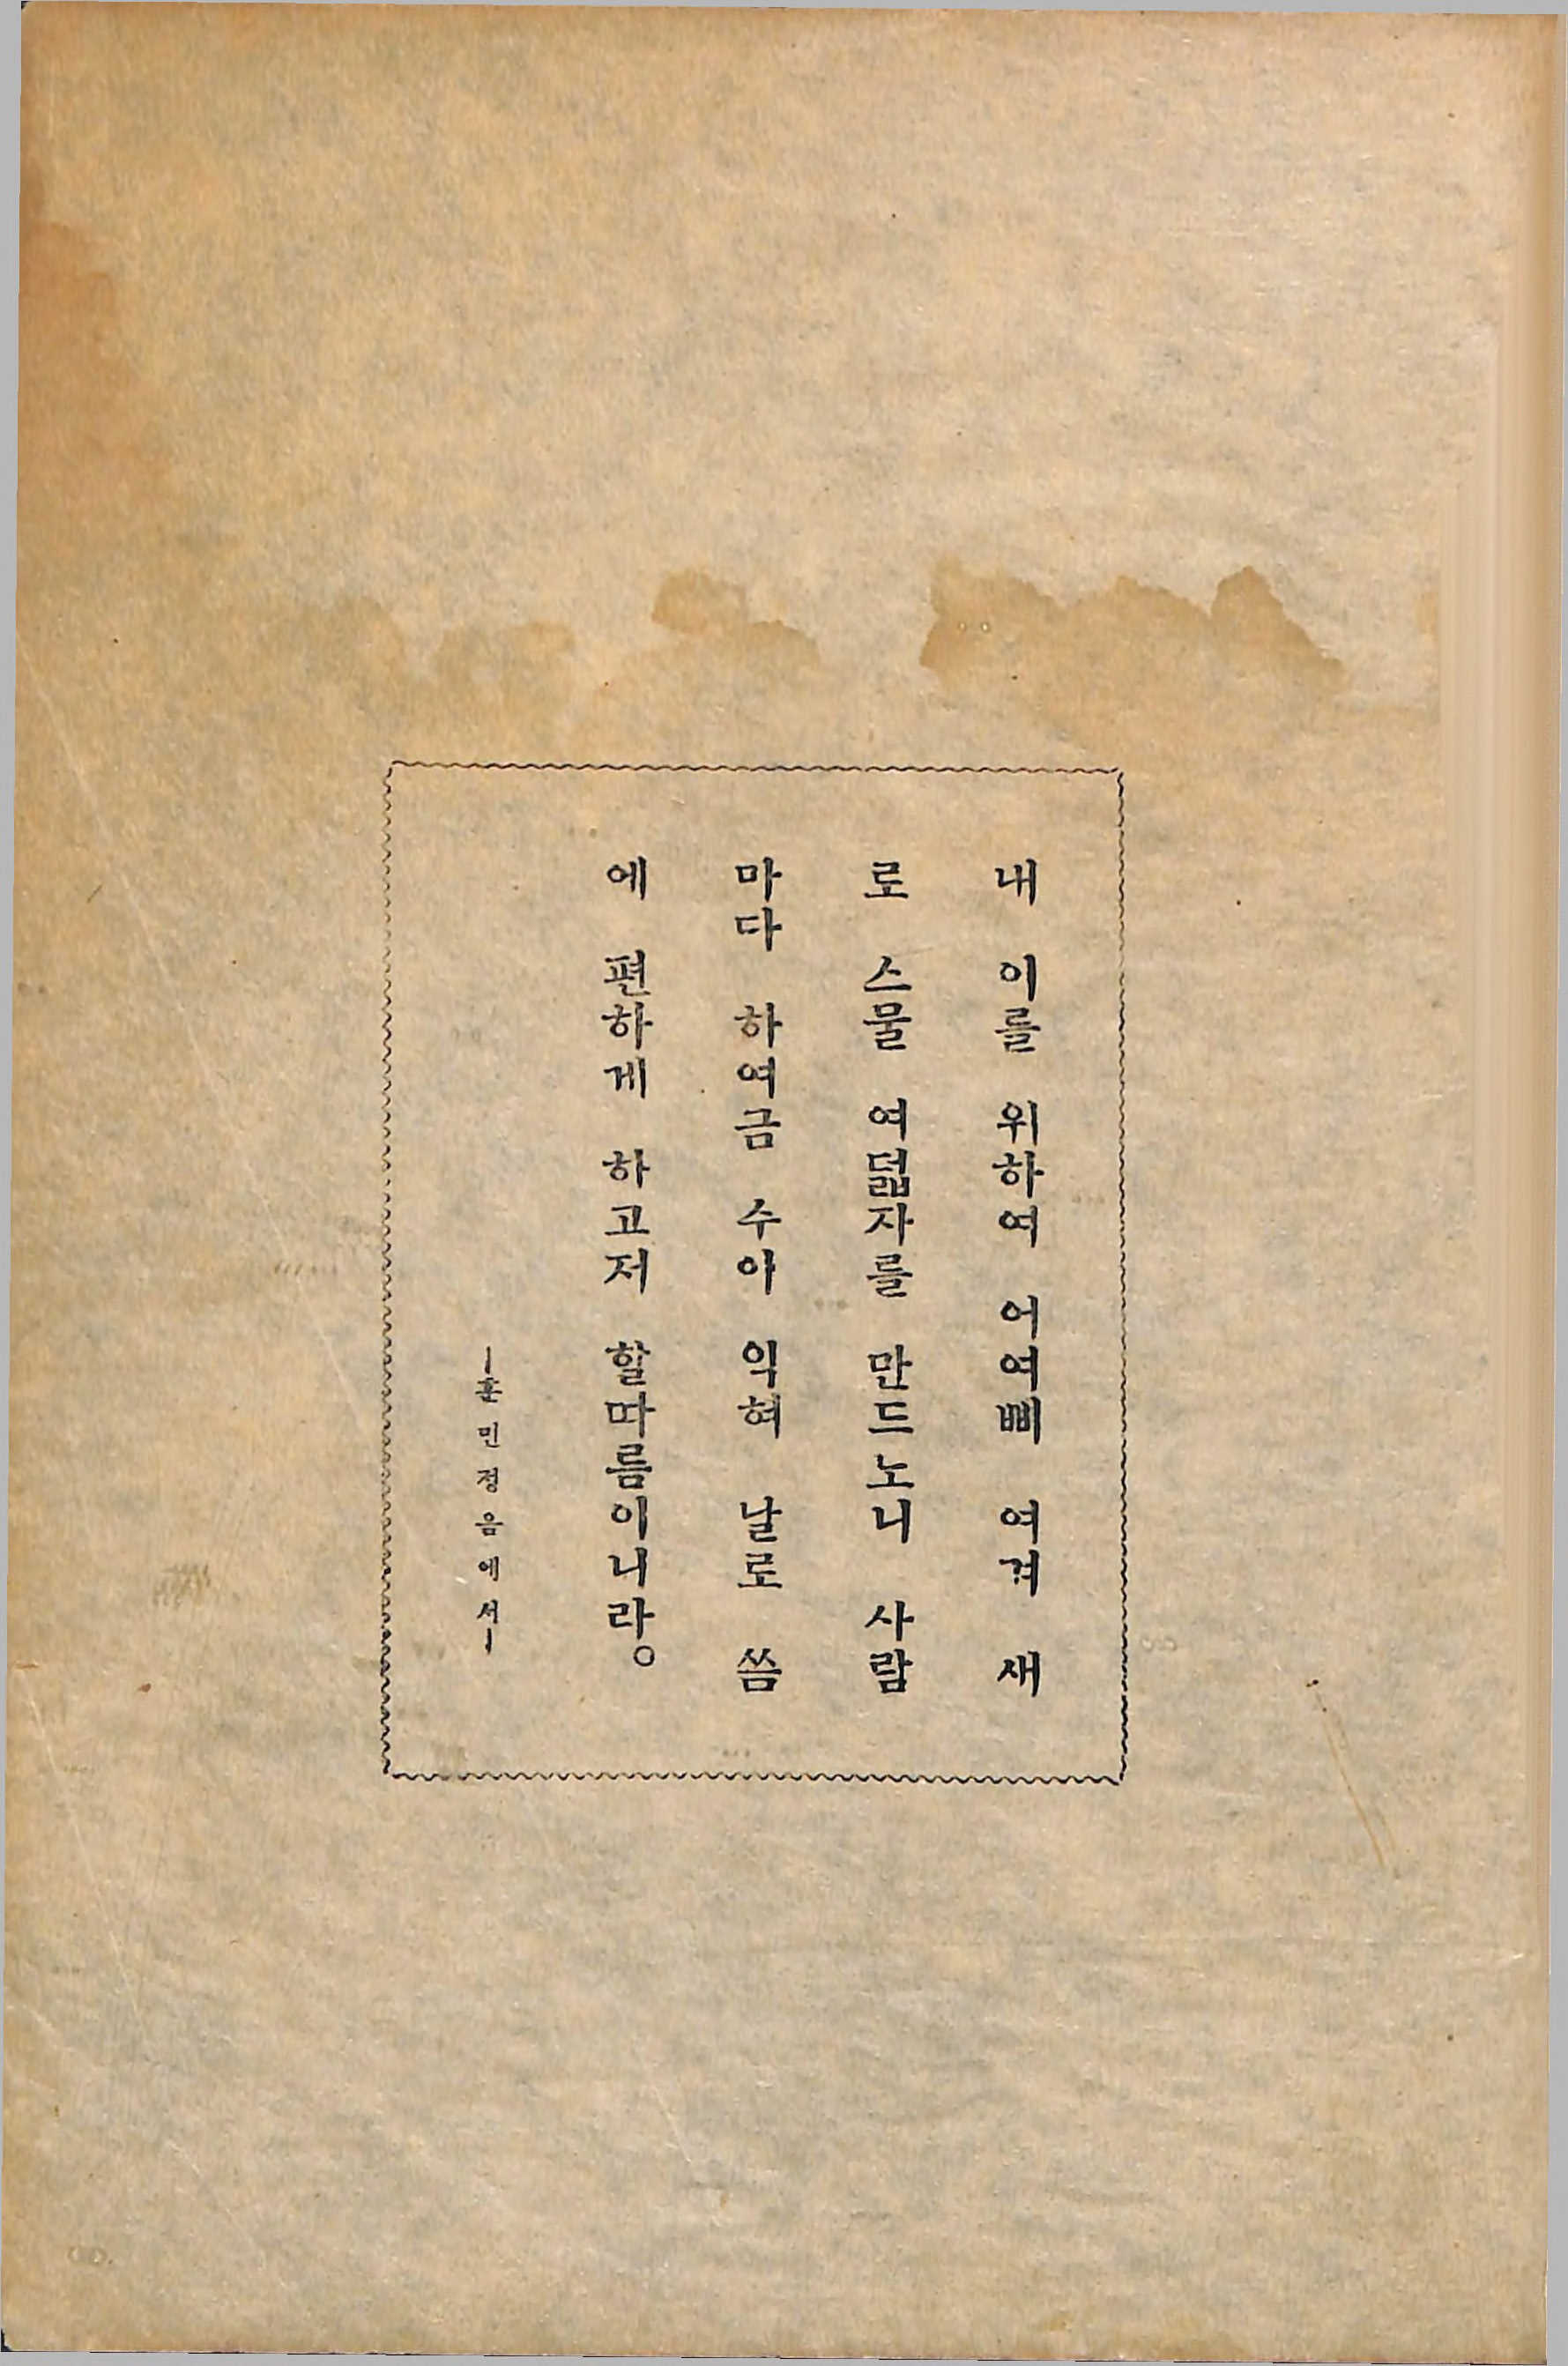 내 이를 위하여 어여삐 여겨 새
로 스물 여덟자를 만드노니 사람
마다 하여금 수이 익혀 날로 씀
에 편하게 하고저 할따름이니라。
—훈민정음에서—